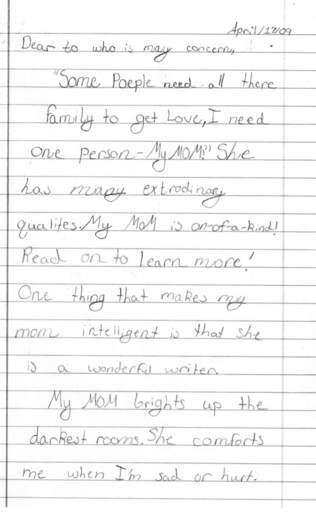 April/17/09
Dear to who is may concern,
"Some Poeple need all there
family to get Love, I need
one person - My MOM!" She
has many extrodinary
qualites. My MoM is on-of-a-kind!
Read on to learn more!
One thing that makes my
mom intelligent is that she
is a wonderful writer.
My MoM brights up the
darkest rooms. She comforts
me when I'm sad or hurt.